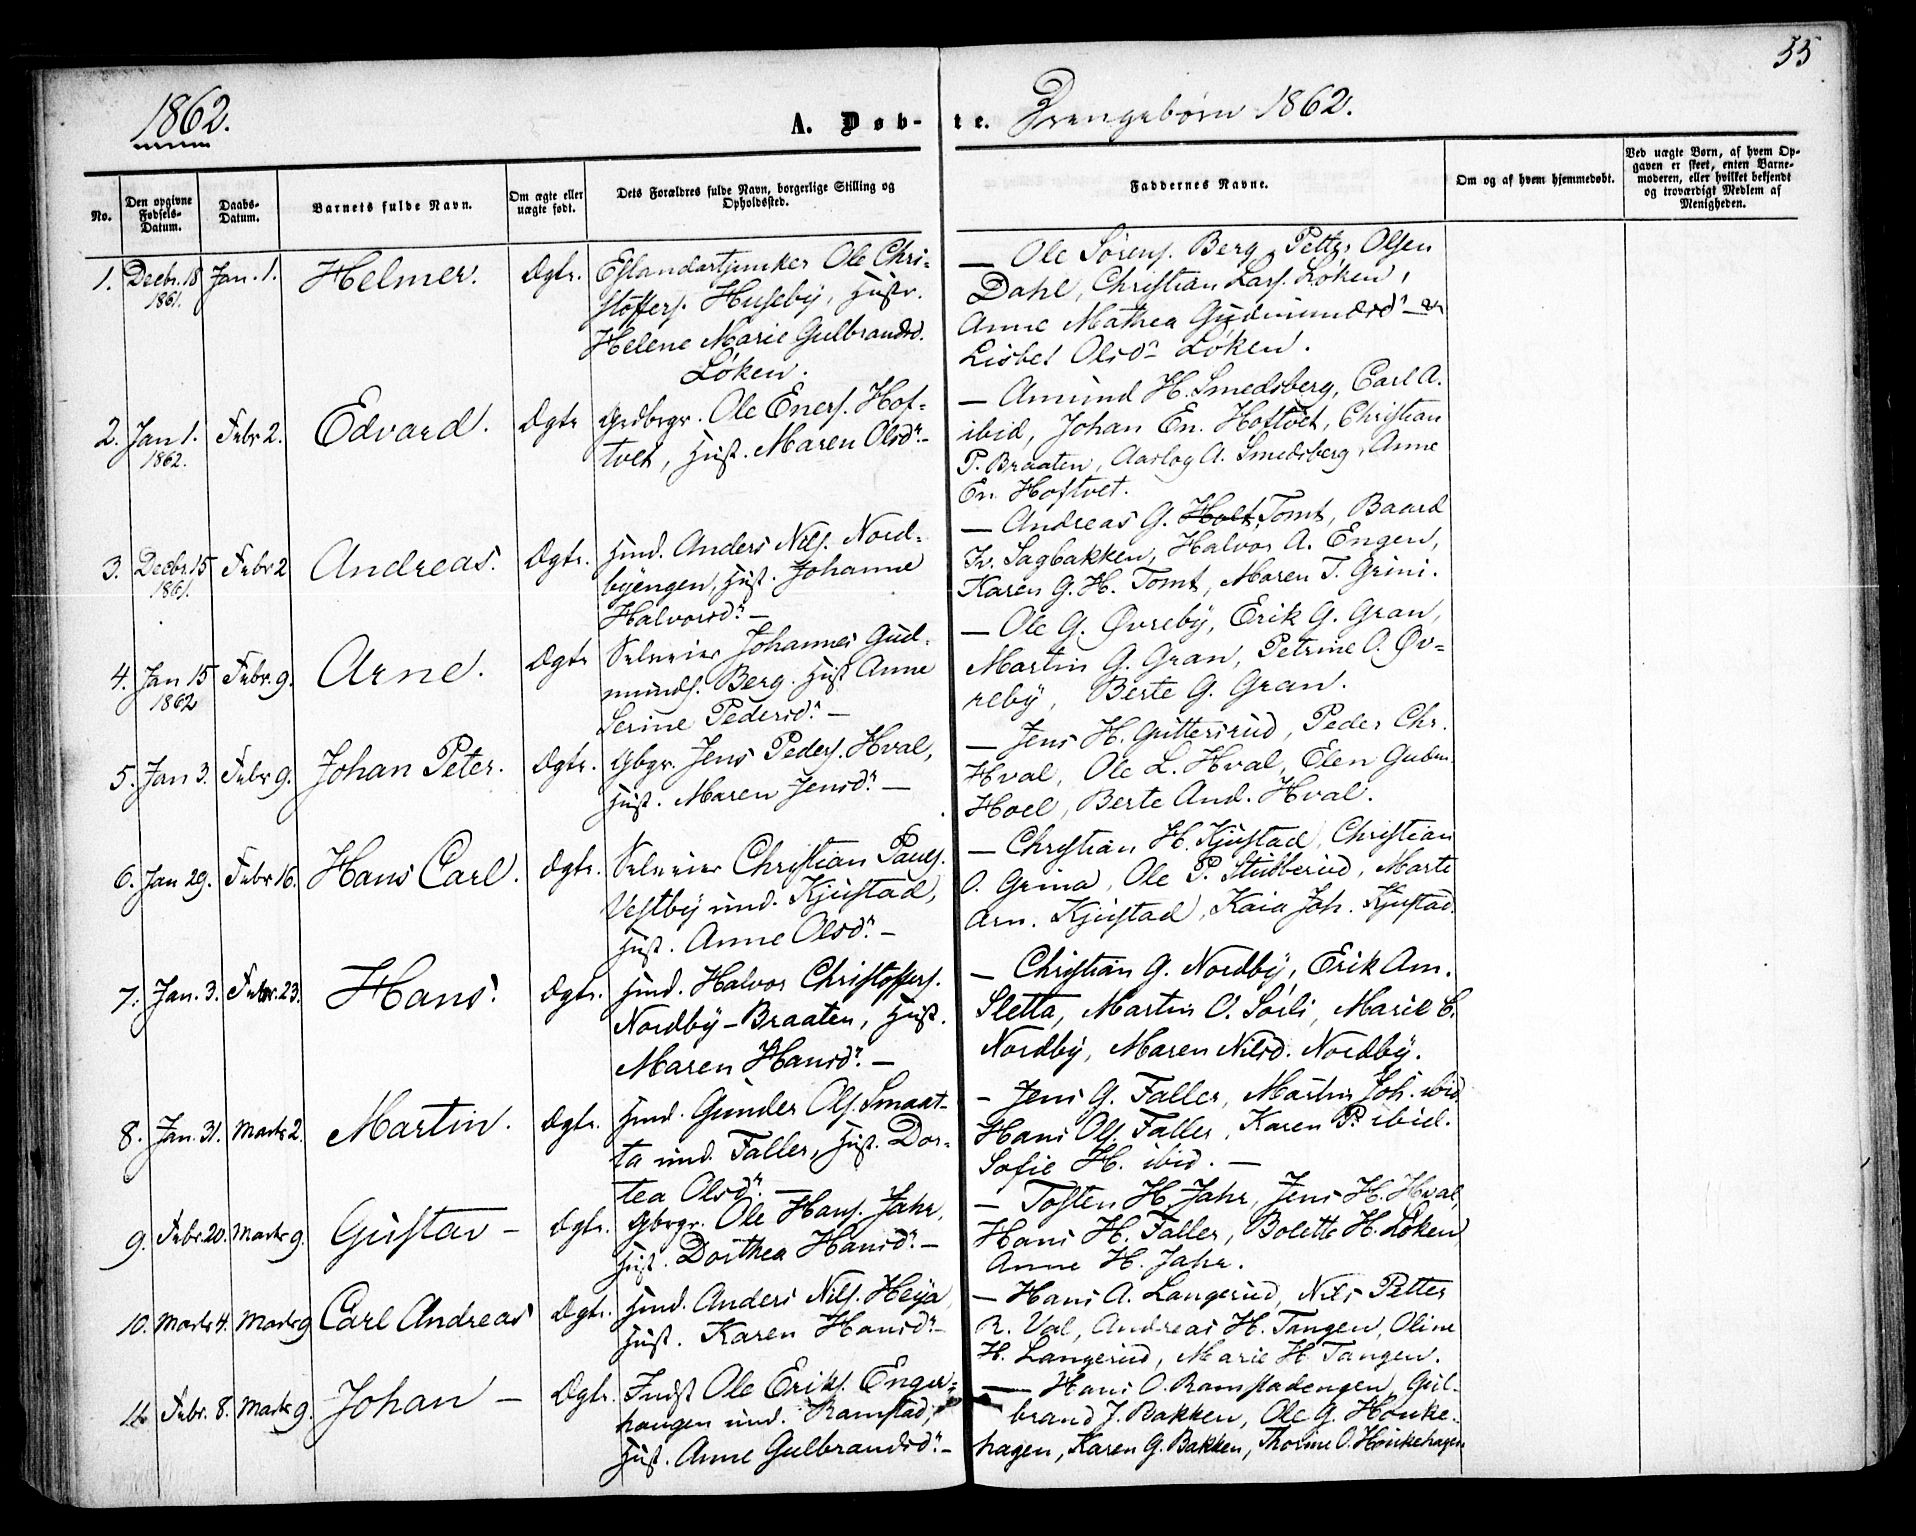 55
1862.
A. Døbte. Drengebørn 1862.
No.
Den opgivne Fødsels-Datum.
Daabs-Datum.
Barnets fulde Navn.
Om ægte eller uægte født.
Dets Forældres fulde Navn, borgerlige Stilling og Opholdssted.
Faddernes Navne.
Om og af hvem hjemmedøbt.
Ved uægte Børn, af hvem Opgaven er skeet, enten Barnemoderen, eller hvilket bekjendt og troværdigt Medlem af Menigheden.
1. Decbr. 18 1861. Jan. 1. Helmer. Ægte.
Estandartjunker Ole Chri-
stoffers. Huseby, Hustr.
Helene Marie Gulbrandsd.
Løken.
— Ole Sørens. Berg, Petter Olsen
Dahl, Christian Lars. Løken,
Anne Mathea Gudmundsdr
Lisbet Olsdr Løken.
2. Jan 1. 1862. Febr 2. Edvard. Ægte
Grdbrgr. Ole Eners. Hof-
tvet, Hust. Maren Olsdr. —
— Amund H. Smedsberg, Carl A.
ibid, Johan En. Hoftvet, Christian
P. Braaten, Aaslog A. Smedsberg, Anne
En. Hoftvet.
3. Decbr. 15 1861. Febr 2 Andreas. Ægte.
Hmd. Anders Nils. Nord-
byengen, Hust. Johanne
Halvorsdr. —
— Andreas G. Holt, Tomt, Baard
Fr. Sagbakken, Halvor A. Engen,
Karen G. H. Tomt, Maren T. Grini.
4. Jan 15 1862 Febr. 9. Arne. Ægte
Selveier Johannes Gud-
munds. Berg. Hust Anne
Serine Pedersdr. —
— Ole G. Øvreby, Erik G. Gran,
Martin G. Gran, Petrine O. Øv-
reby, Berte G. Gran.
5. Jan 3. Febr 9. Johan Peter. Ægte.
Gbgr. Jens Peders. Hval,
Hust. Maren Jensdr. —
— Jens H. Guttersrud, Peder Chr.
Hval, Ole L. Hval, Elen Gubm
Hoel, Berte And. Hval.
6. Jan 29. Febr 16. Hans Carl. Ægte.
Selveier Christian Pauls.
Vestby und. Kjustad,
Hust. Anne Olsdr. —
— Christian H. Kjustad, Christian
O. Grina, Ole P. Stubberud, Marte
Arn. Kjustad, Kaia Joh. Kjustad.
7. Jan. 3. Febr. 23. Hans. Ægte.
Hmd. Halvor Christoffers.
Nordby-Braaten, Hust.
Maren Hansdr. —
— Christian G. Nordby, Erik Am.
Sletta, Martin O. Sørli, Marie C.
Nordby, Maren Nilsd. Nordby.
8. Jan. 31. Marts 2. Martin. Ægte.
Hmd. Gunder Ols. Smaat-
ta und. Faller, Hust. Dor-
tea Olsdr. —
— Jens G. Faller, Martin Joh. ibid
Hans Ols. Faller, Karen P. ibid.
Sofie H. ibid. —
9. Febr. 20. Marts 9. Gustav — Ægte.
Gbrgr. Ole Hans. Jahr,
Hust. Dorthea Hansdr. —
— Tosten H. Jahr, Jens H. Hval,
Hans H. Faller, Bolette H. Løken,
Anne H. Jahr.
10. Marts 4. Marts 9 Carl Andreas Ægte.
Hmd. Anders Nils. Heya,
Hust. Karen Hansdr. —
— Hans A. Langerud, Nils Petter
R. Val, Andreas H. Tangen, Oline
H. Langerud, Marie H. Tangen.
11. Febr. 8. Marts 9. Johan — Ægte.
Indst Ole Eriks. Enger-
haugen und. Ramstad,
Hust. Anne Gulbrandsdr. —
— Hans O. Ramstadengen, Gul-
brand J. Bakken, Ole G. Houke-
hagen, Karen G. Bakken, Thorine O. Houkehagen